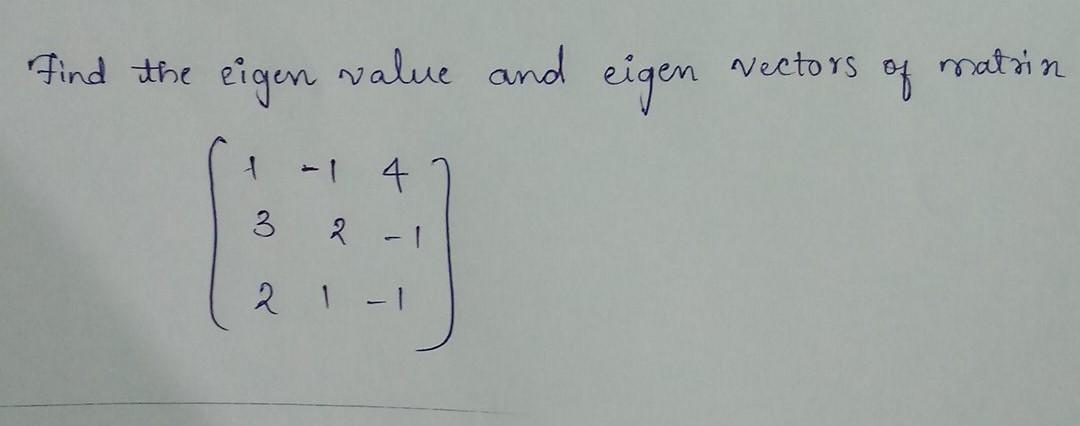 Find the eigen value and eigen vectors of matrin
1 -1 4
3 2 -1
2 1 -1